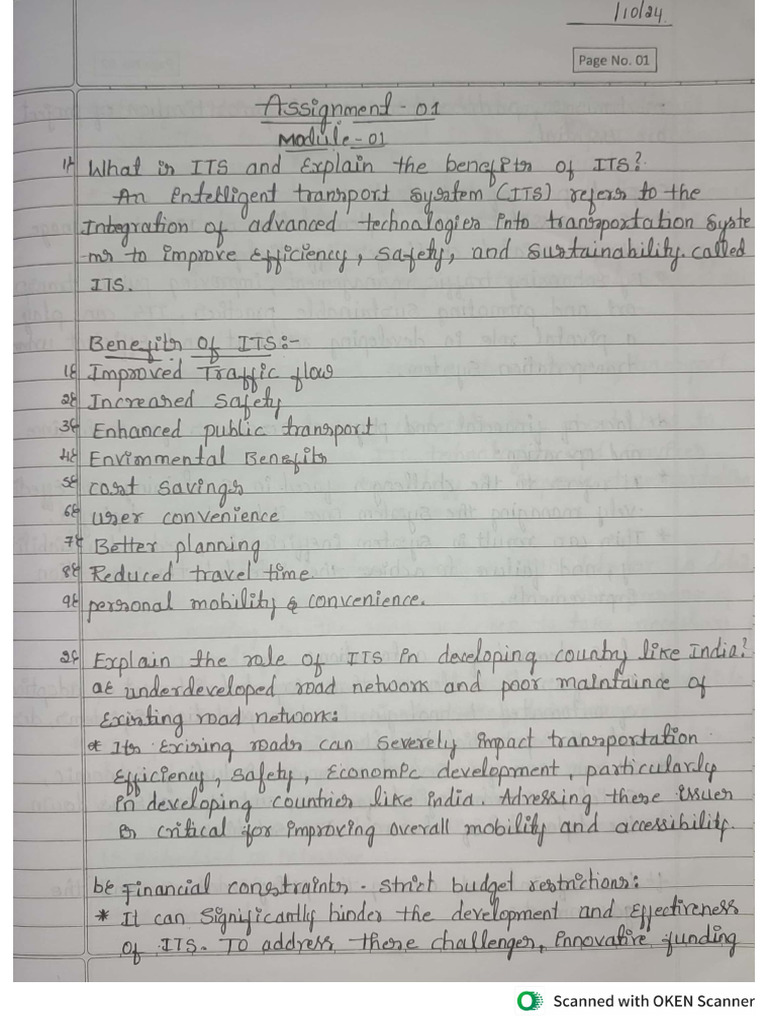 /10/24
Page No. 01
Assignment - 01
Module - 01
1) What is ITS and Explain the benefits of ITS?
An Entelligent transport System (ITS) refers to the
Integration of advanced technologies into transportation Syste
ms to improve Efficiency, Safety, and Sustainability. called
ITS.
Benefits Of ITS:-
1) Improved Traffic flow
2) Increased Safety
3) Enhanced public transport
4) Envirnmental Benefits
5) cost savings
6) user convenience
7) Better planning
8) Reduced travel time.
9) personal mobility & convenience.
2) Explain the role of ITS in developing country like India?
a) underdeveloped road network and poor maintaince of
Existing road network:
* Its Exiring roads can Severely impact transportation
Efficiency, Safety, Economic development, particularly
in developing countries like india. Adressing these issues
is critical for improving overall mobility and accessibility.
b) Financial constraints - strict budget restrictions:
* It can Significantly hinder the development and Effectiveness
Of ITS. To address these challenges, innovative funding
Scanned with OKEN Scanner